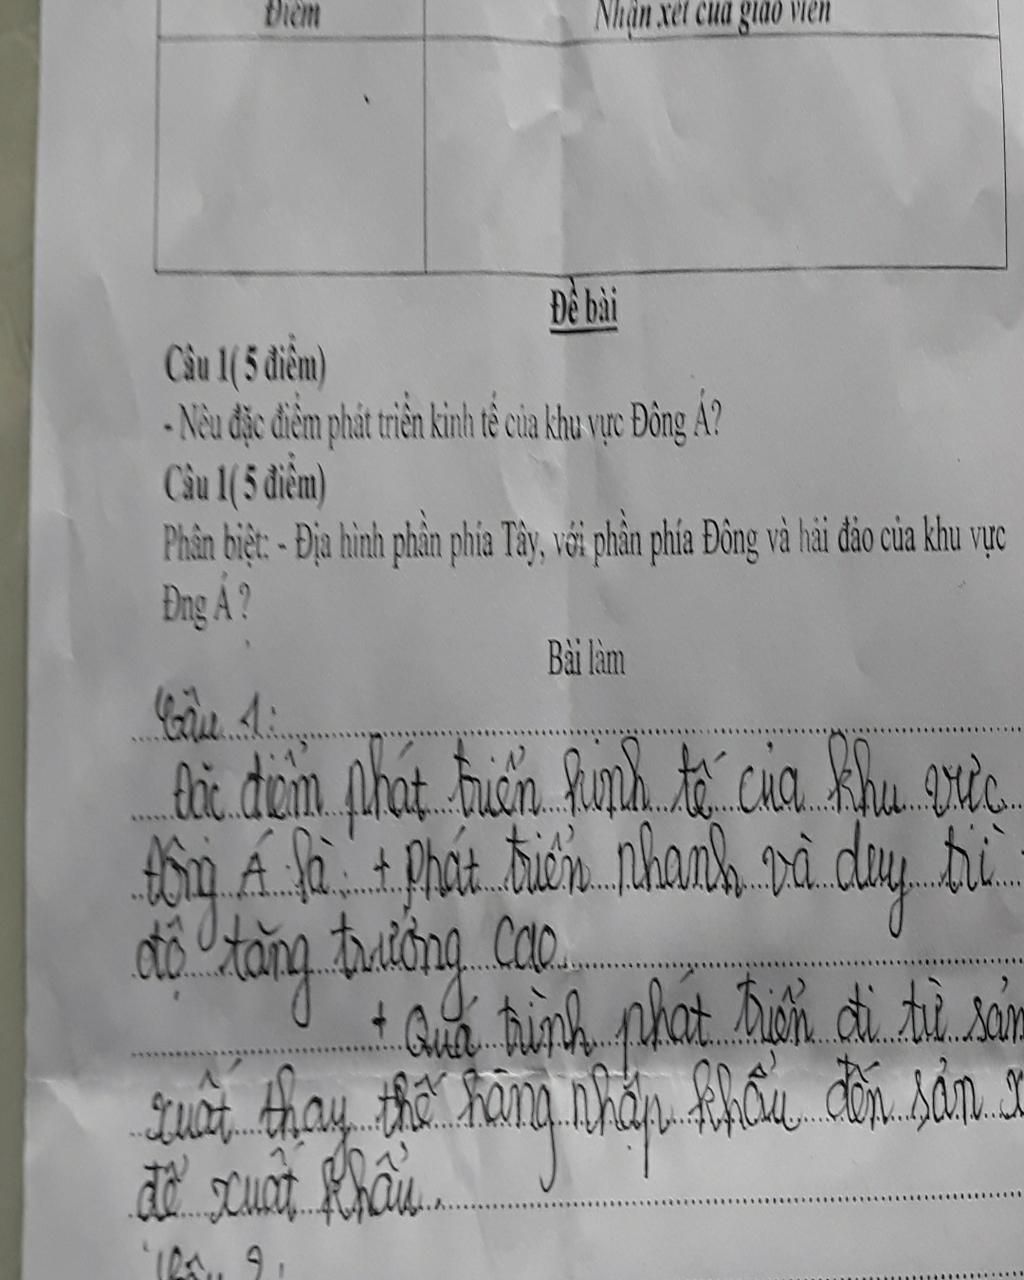 Điểm Nhận xét của giáo viên
Đề bài
Câu 1( 5 điểm)
- Nêu đặc điểm phát triển kinh tế của khu vực Đông Á?
Câu 1( 5 điểm)
Phân biệt: - Địa hình phần phía Tây, với phần phía Đông và hải đảo của khu vực
Đng Á ?
Bài làm
Câu 1:
Đặc điểm phát triển kinh tế của khu vực
Đông Á là: + Phát triển nhanh và duy trì
độ tăng trưởng cao
+ Quá trình phát triển đi từ sản
xuất thay thế hàng nhập khẩu đến sản
để xuất khẩu.